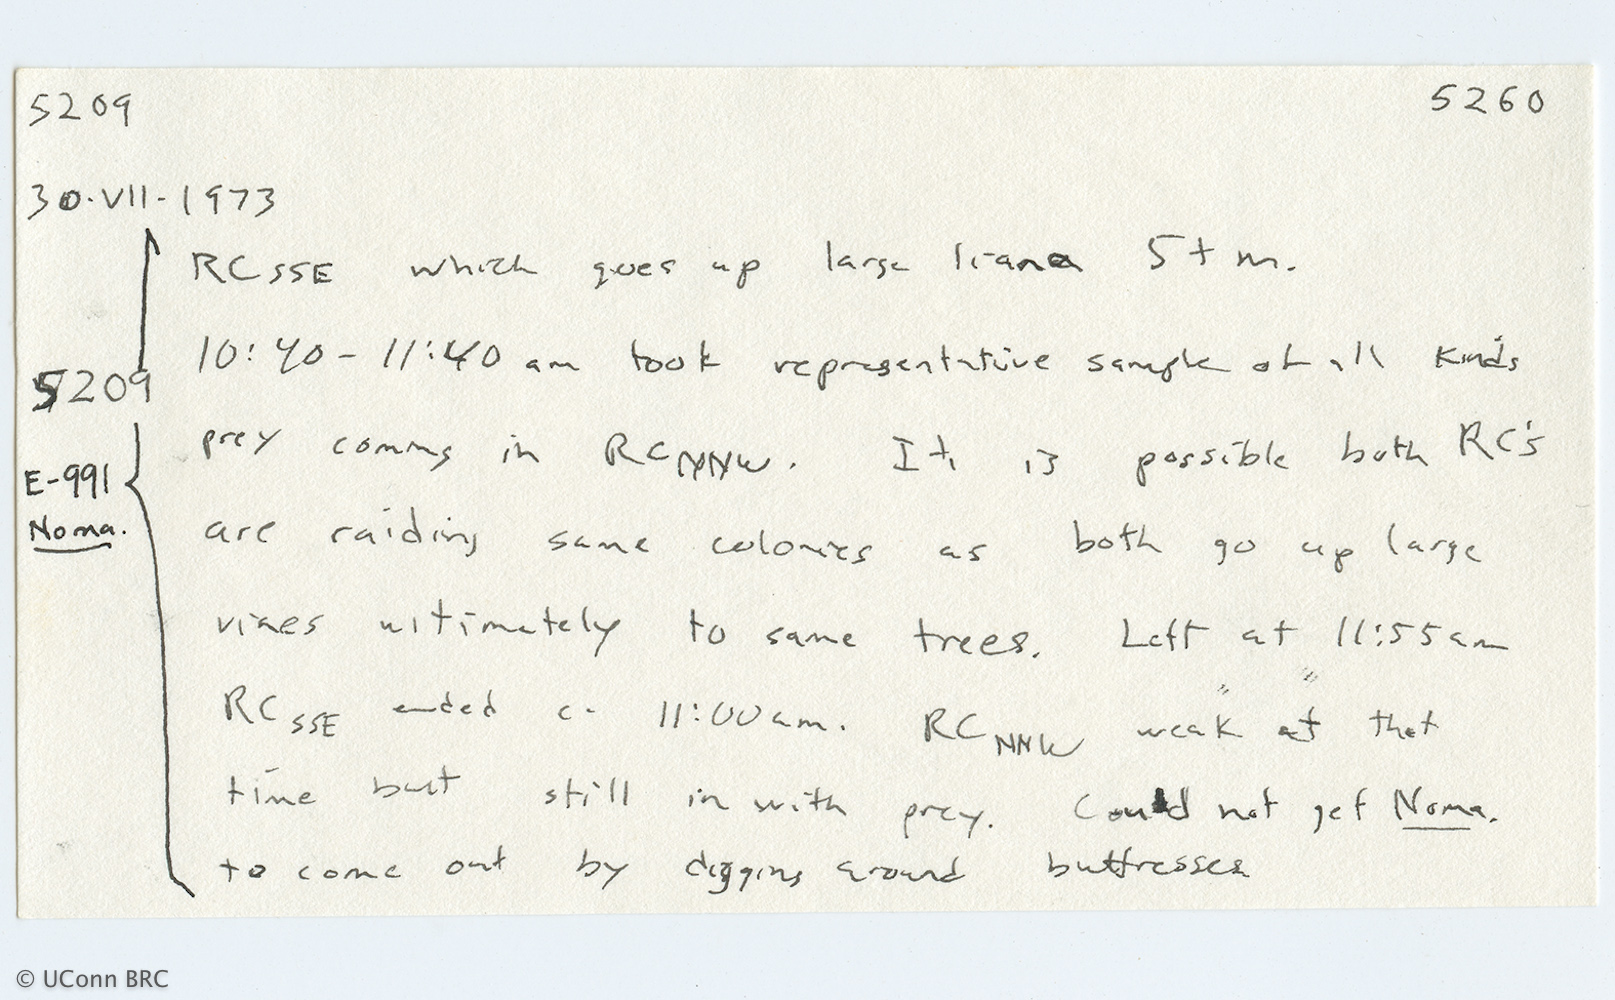 5209 5260
30·VII-1973
RC SSE which goes up large liana 5+ m.
10:40-11:40 am took representative sample of all kinds
5209
prey coming in RC NNW. It is possible both RC's
E-991
Noma.
are raiding same colonies as both go up large
vines ultimately to same trees. Left at 11:55 am
RC SSE ended ca 11:00 am. RC NNW "weak" at that
time but still in with prey. Could not get Noma.
to come out by digging around buttresses
© UConn BRC